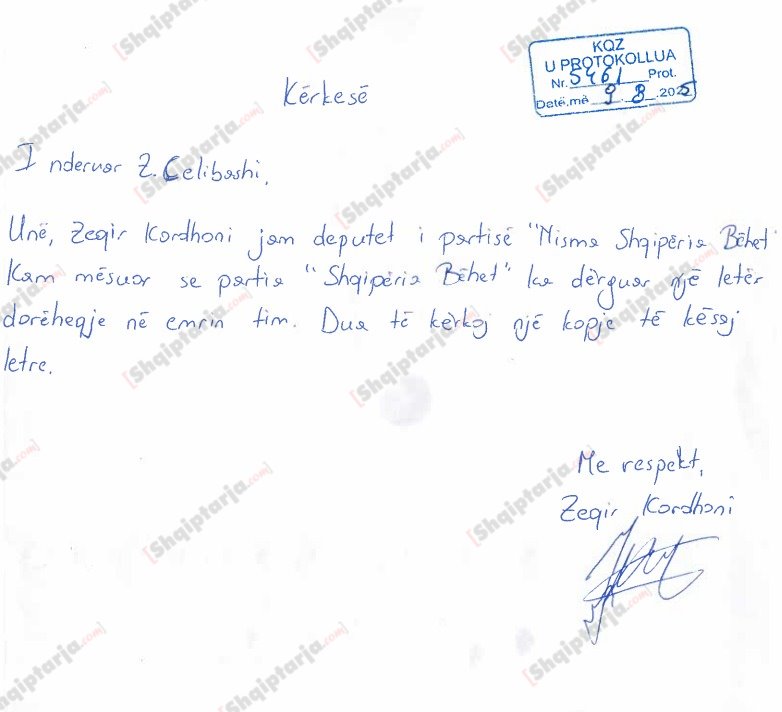 KQZ
U PROTOKOLLUA
Nr. 5461 Prot.
Datë, më 9. 8 .2025
Kërkesë
I nderuar Z. Celibashi,
Unë, Zeqir Kordhoni jam deputet i partisë "Nisma Shqipëria Bëhet"
Kam mësuar se partia "Shqipëria Bëhet" ka dërguar një letër
dorëheqje në emrin tim. Dua të kërkoj një kopje të kësaj
letre.
Me respekt,
Zeqir Kordhoni
[Shqiptarja.com]